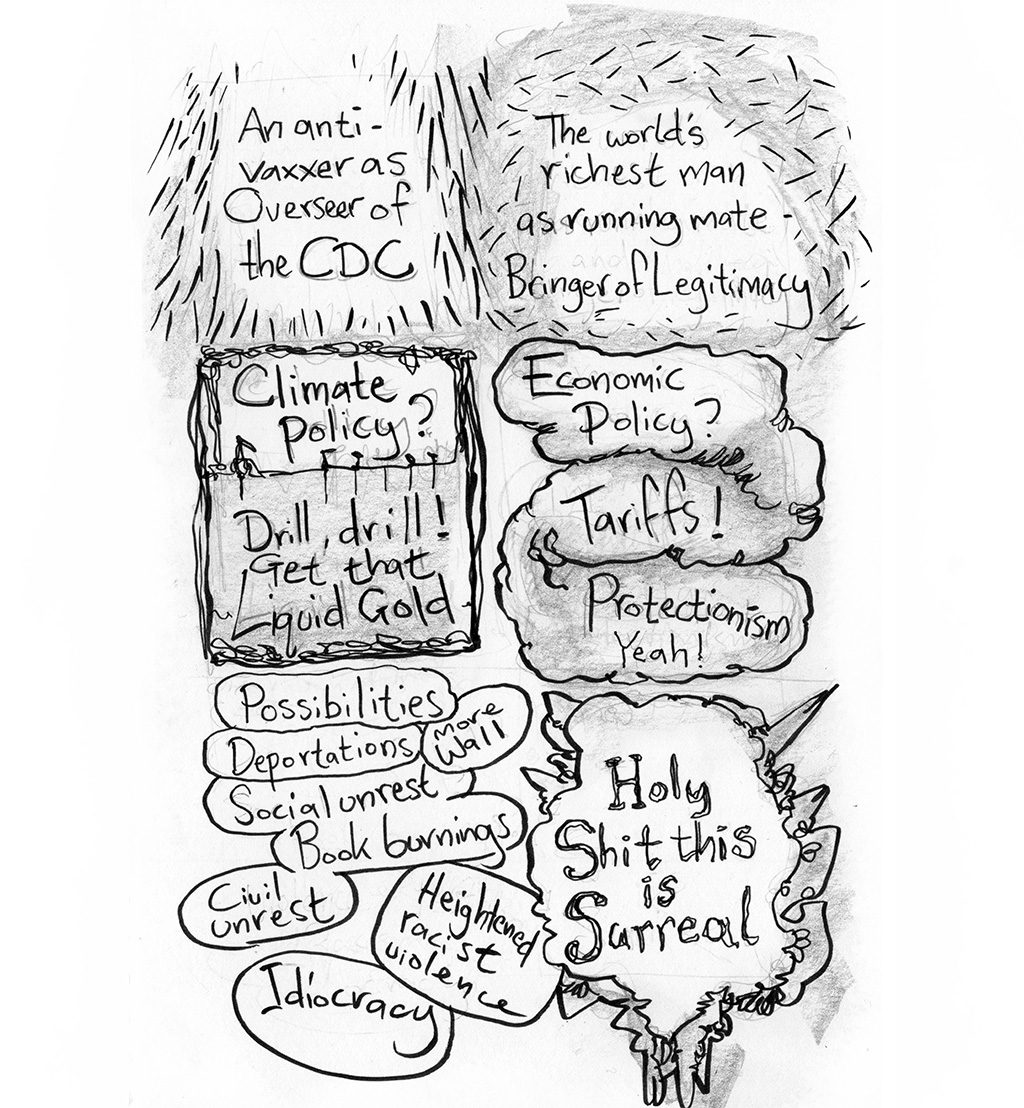 An anti-
vaxxer as
Overseer of
the CDC
The world's
richest man
as running mate -
Bringer of Legitimacy
Climate
policy?
Drill, drill!
Get that
Liquid Gold
Economic
Policy?
Tariffs!
Protectionism
Yeah!
Possibilities
Deportations
more
Wall
Social unrest
Book burnings
Civil
unrest
Heightened
racist
violence
Idiocracy
Holy
Shit this
is
Surreal